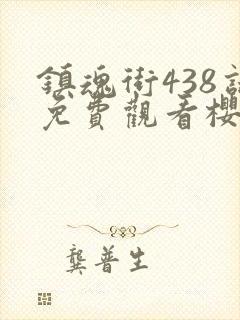 鎮魂街438
免費觀看櫻
龔普生